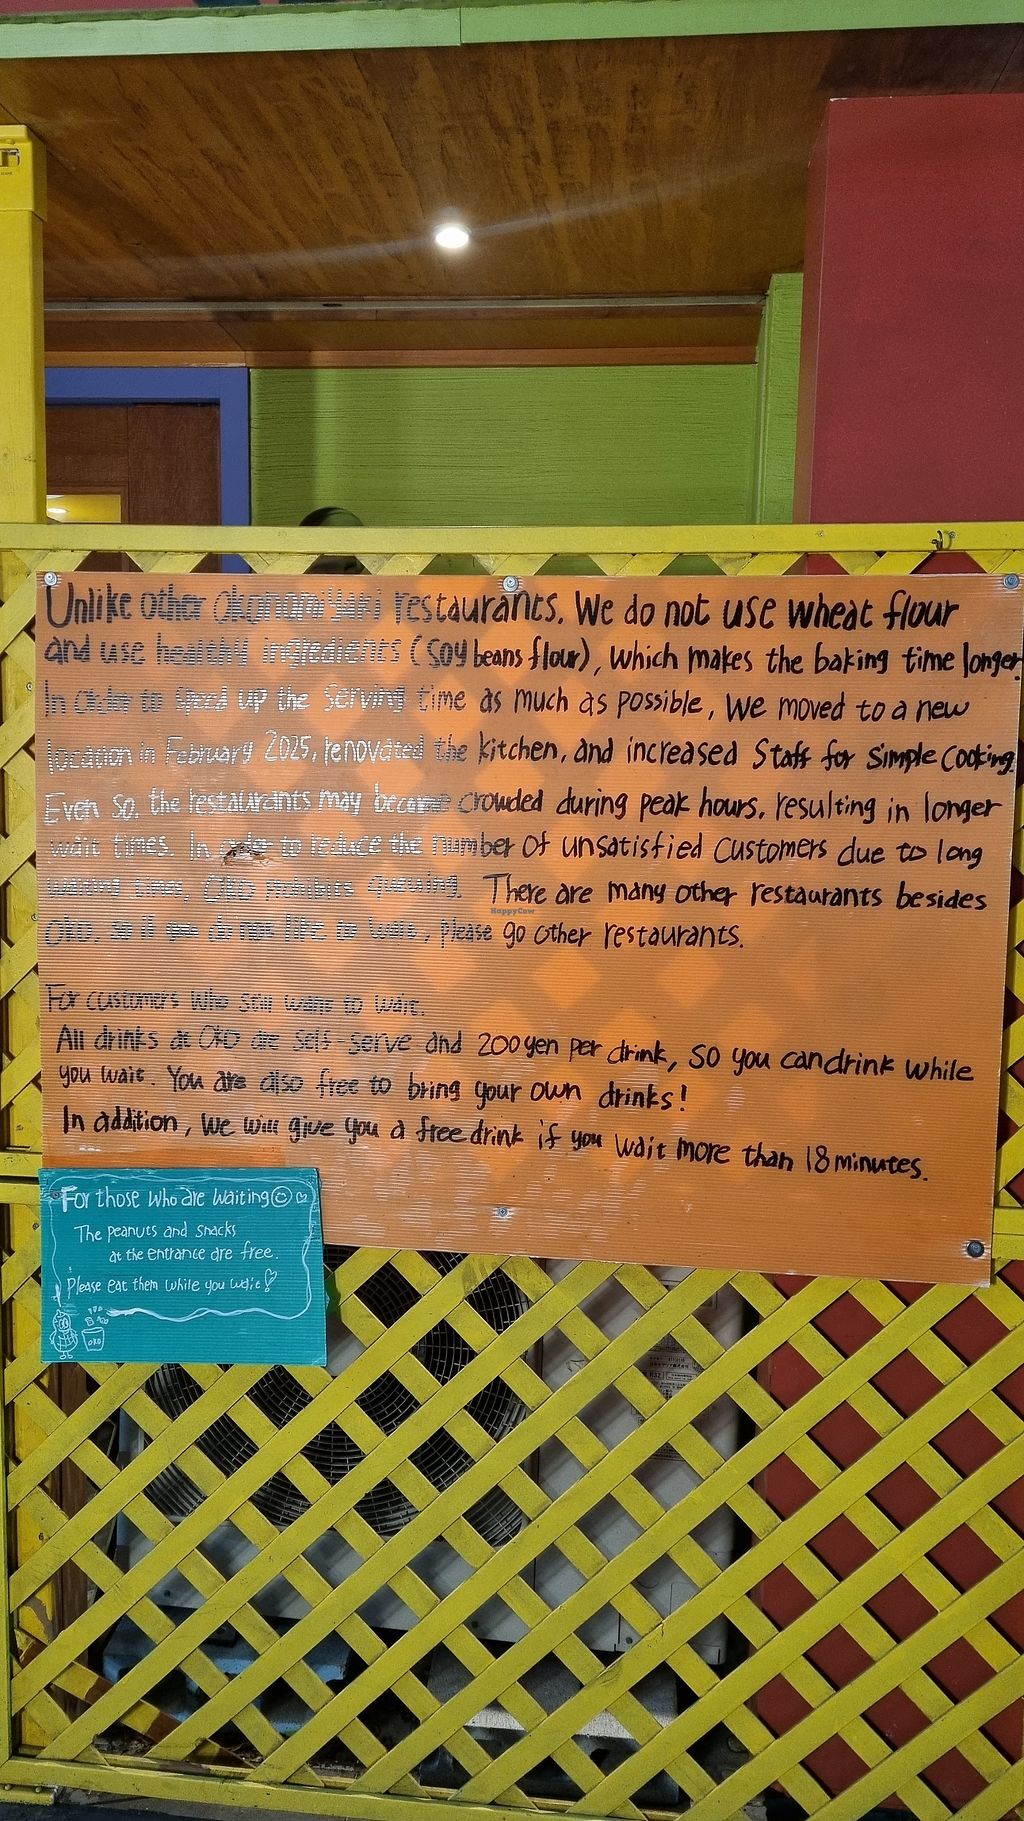 Unlike other Okonomiyaki restaurants. We do not use wheat flour
and use healthy ingredients (soy beans flour), which makes the baking time longer.
In order to speed up the serving time as much as possible, We moved to a new
location in February 2025, renovated the kitchen, and increased Staff for Simple Cooking.
Even so, the restaurants may become crowded during peak hours, resulting in longer
wait times. In order to reduce the number of unsatisfied customers due to long
waiting times, OKO prohibits queuing. There are many other restaurants besides
HappyCow
OKO, so if you do not like to wait, please go other restaurants.
For customers who still want to wait.
All drinks at OKO are self-serve and 200yen per drink, so you can drink while
you wait. You are also free to bring your own drinks!
In addition, We will give you a free drink if you wait more than 18 minutes.
For those who are waiting
The peanuts and snacks
at the entrance are free.
Please eat them while you wait!
OKO